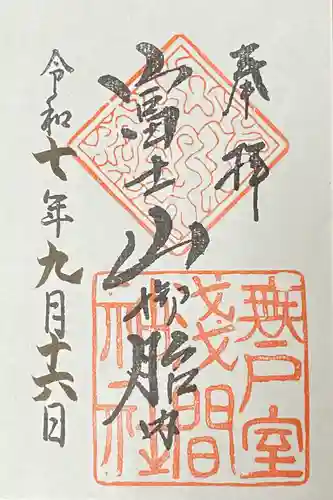 奉拝
富士山御胎内
令和七年九月十六日
無戸室
浅間
神社